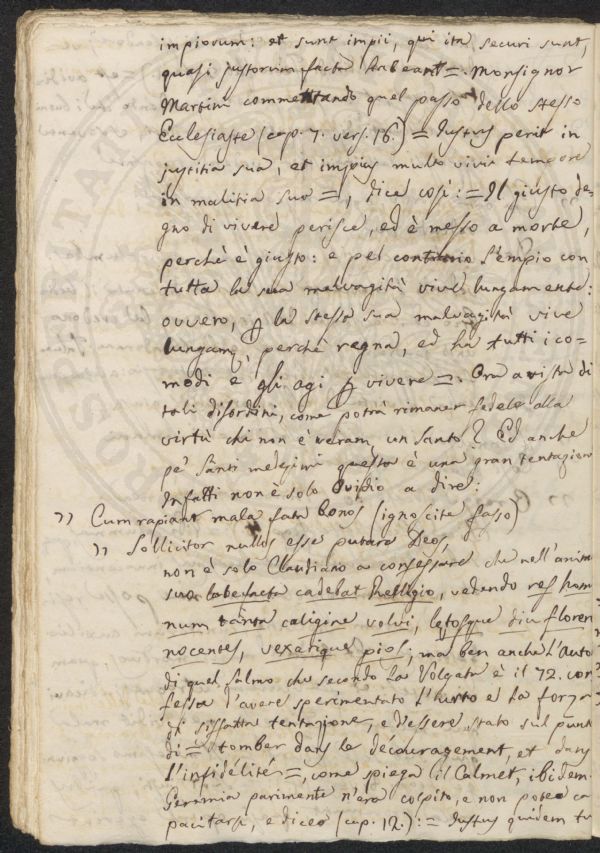 impiorum: et sunt impii, qui ita securi sunt,
quasi justorum facta habeant =. Monsignor
Martini commentando quel passo dello stesso
Ecclesiaste (cap. 7. vers. 16.) = Justus perit in
justitia sua, et impius multo vivit tempore
in malitia sua =, dice così: = Il giusto de-
gno di vivere perisce, ed è messo a morte,
perchè è giusto: e pel contrario l'empio con
tutta la sua malvagità vive lungamente:
ovvero, p la stessa sua malvagità vive
lungam, perchè regna, ed ha tutti i co-
modi e gli agi p vivere =. Ora a vista di
tali disordini, come potrà rimaner fedele alla
virtù chi non è veram, un Santo? Ed anche
pe' Santi medesimi questa è una gran tentazione
Infatti non è solo Ovidio a dire:
" Cum rapiant mala fata bonos (ignoscite fasso)
" Sollicitor nullos esse putare Deos,
non è solo Claudiano a confessare che nell'anim
suo labefacta cadebat Relligio, vedendo res hom
num tanta caligine volvi, letosque diu floren
nocentes, vexarique pios; ma ben anche l'Auto
di quel Salmo che secondo la Volgata è il 72. con
fessa d'avere sperimentato l'urto e la forza
di siffatta tentazione, e d'essere stato sul punt
di = tomber dans le découragement, et dans
l'infidélité =, come spiega il Calmet, ibidem.
Geremia parimente n'era colpito, e non potea ca
pacitarsi, e dicea (cap. 12.): = Justus quidem tu